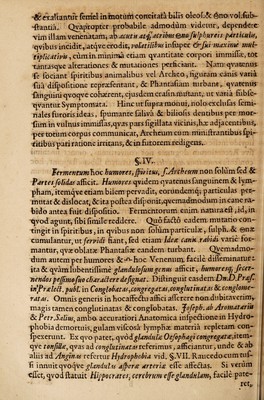 & exasiantur semel in motum concitatâ bilis oleosâ & suo vol. sub-
stantiâ. Quapropter probabile admodum videtur, dependere
vim illam venenatam, ab acutis atq; acribus suo sulphureis particulis,
quibus incidit, atque erodit, volatilibus insuper & sui maxime mul-
tiplicativis, cum in minimâ etiam quantitate corpori immissus, tot
tantasque alterationes & mutationes perficiant. Nam quatenus
se sociant spiritibus animalibus vel Archeo, figuram canis variâ
suâ dispositione repræsentant, & Phantasiam turbant, quatenus
sanguini quoque cohærent, ejusdem crasin mutant, ut varia subse-
quantur Symptomata. Hinc ut supra monui, nolo exclusas semi-
niales furoris ideas, spumante salivâ & biliosis dentibus per mor-
sum in vulnus immissas, quas pars sugillata vicinis, hæ adjacentibus,
per totum corpus communicat, Archeum cum ministrantibus spi-
ritibus pari ratione irritans, & in furorem redigens.
§. IV.
Fermentum hoc humores, spiritus, s. Archeum non solùm sed &
Partes solidas afficit. Humores quidem quatenus sanguinem & lym-
pham, itemque etiam bilem pervadit, eorundemque particulas per-
mutat & dislocat, & ita postea disponit, quemadmodum in cane ra-
bido antea fuit dispositio. Fermentorum enim natura est, id, in
quod agunt, sibi simile reddere. Quâ facto eadem mutatio con-
tingit in spiritibus, in quibus non solùm particulæ, sulph. & suæ
cumulantur, ut fervidi fiant, sed etiam Ideæ canis rabidi variè for-
mantur, quæ oblatæ Phantasiæ eandem turbant. Quemadmo-
dum autem per humores & spir. hoc Venenum facilè disseminatur:
ita & quàm lubentissimè glandulosum genus afficit, humores fecer-
nendos pessimo suo charactere designat. Distinguit easdem Dn. D. Præs.
in Prælect. publ. in Conglobatas, congregatas, conglutinatas & conglome-
ratas. Omnis generis in hocce affectu affici asserere non dubitaverim,
magis tamen conglutinatas & conglobatas. Joseph. de Aromatariis
& Petr. Salius, ambo accuratiori Anatomica inspectione in Hydro-
phobia demortuis, gulam viscosâ lymphæ materiâ repletam con-
spexerunt. Ex quo patet, quòd glandulæ Oesophagi congregatæ, item-
que tonsillæ, quas ad conglutinatas referimus, afficiantur, unde & ab
aliis ad Anginas refertur Hydrophobia vid. §. VIII. Raucedo cum tus-
si innuit quoque glandulas asperæ arteriæ esse affectas. Si verùm
esset, quod statuit Hippocrates, cerebrum esse glandulam, facilè pate-
ret,